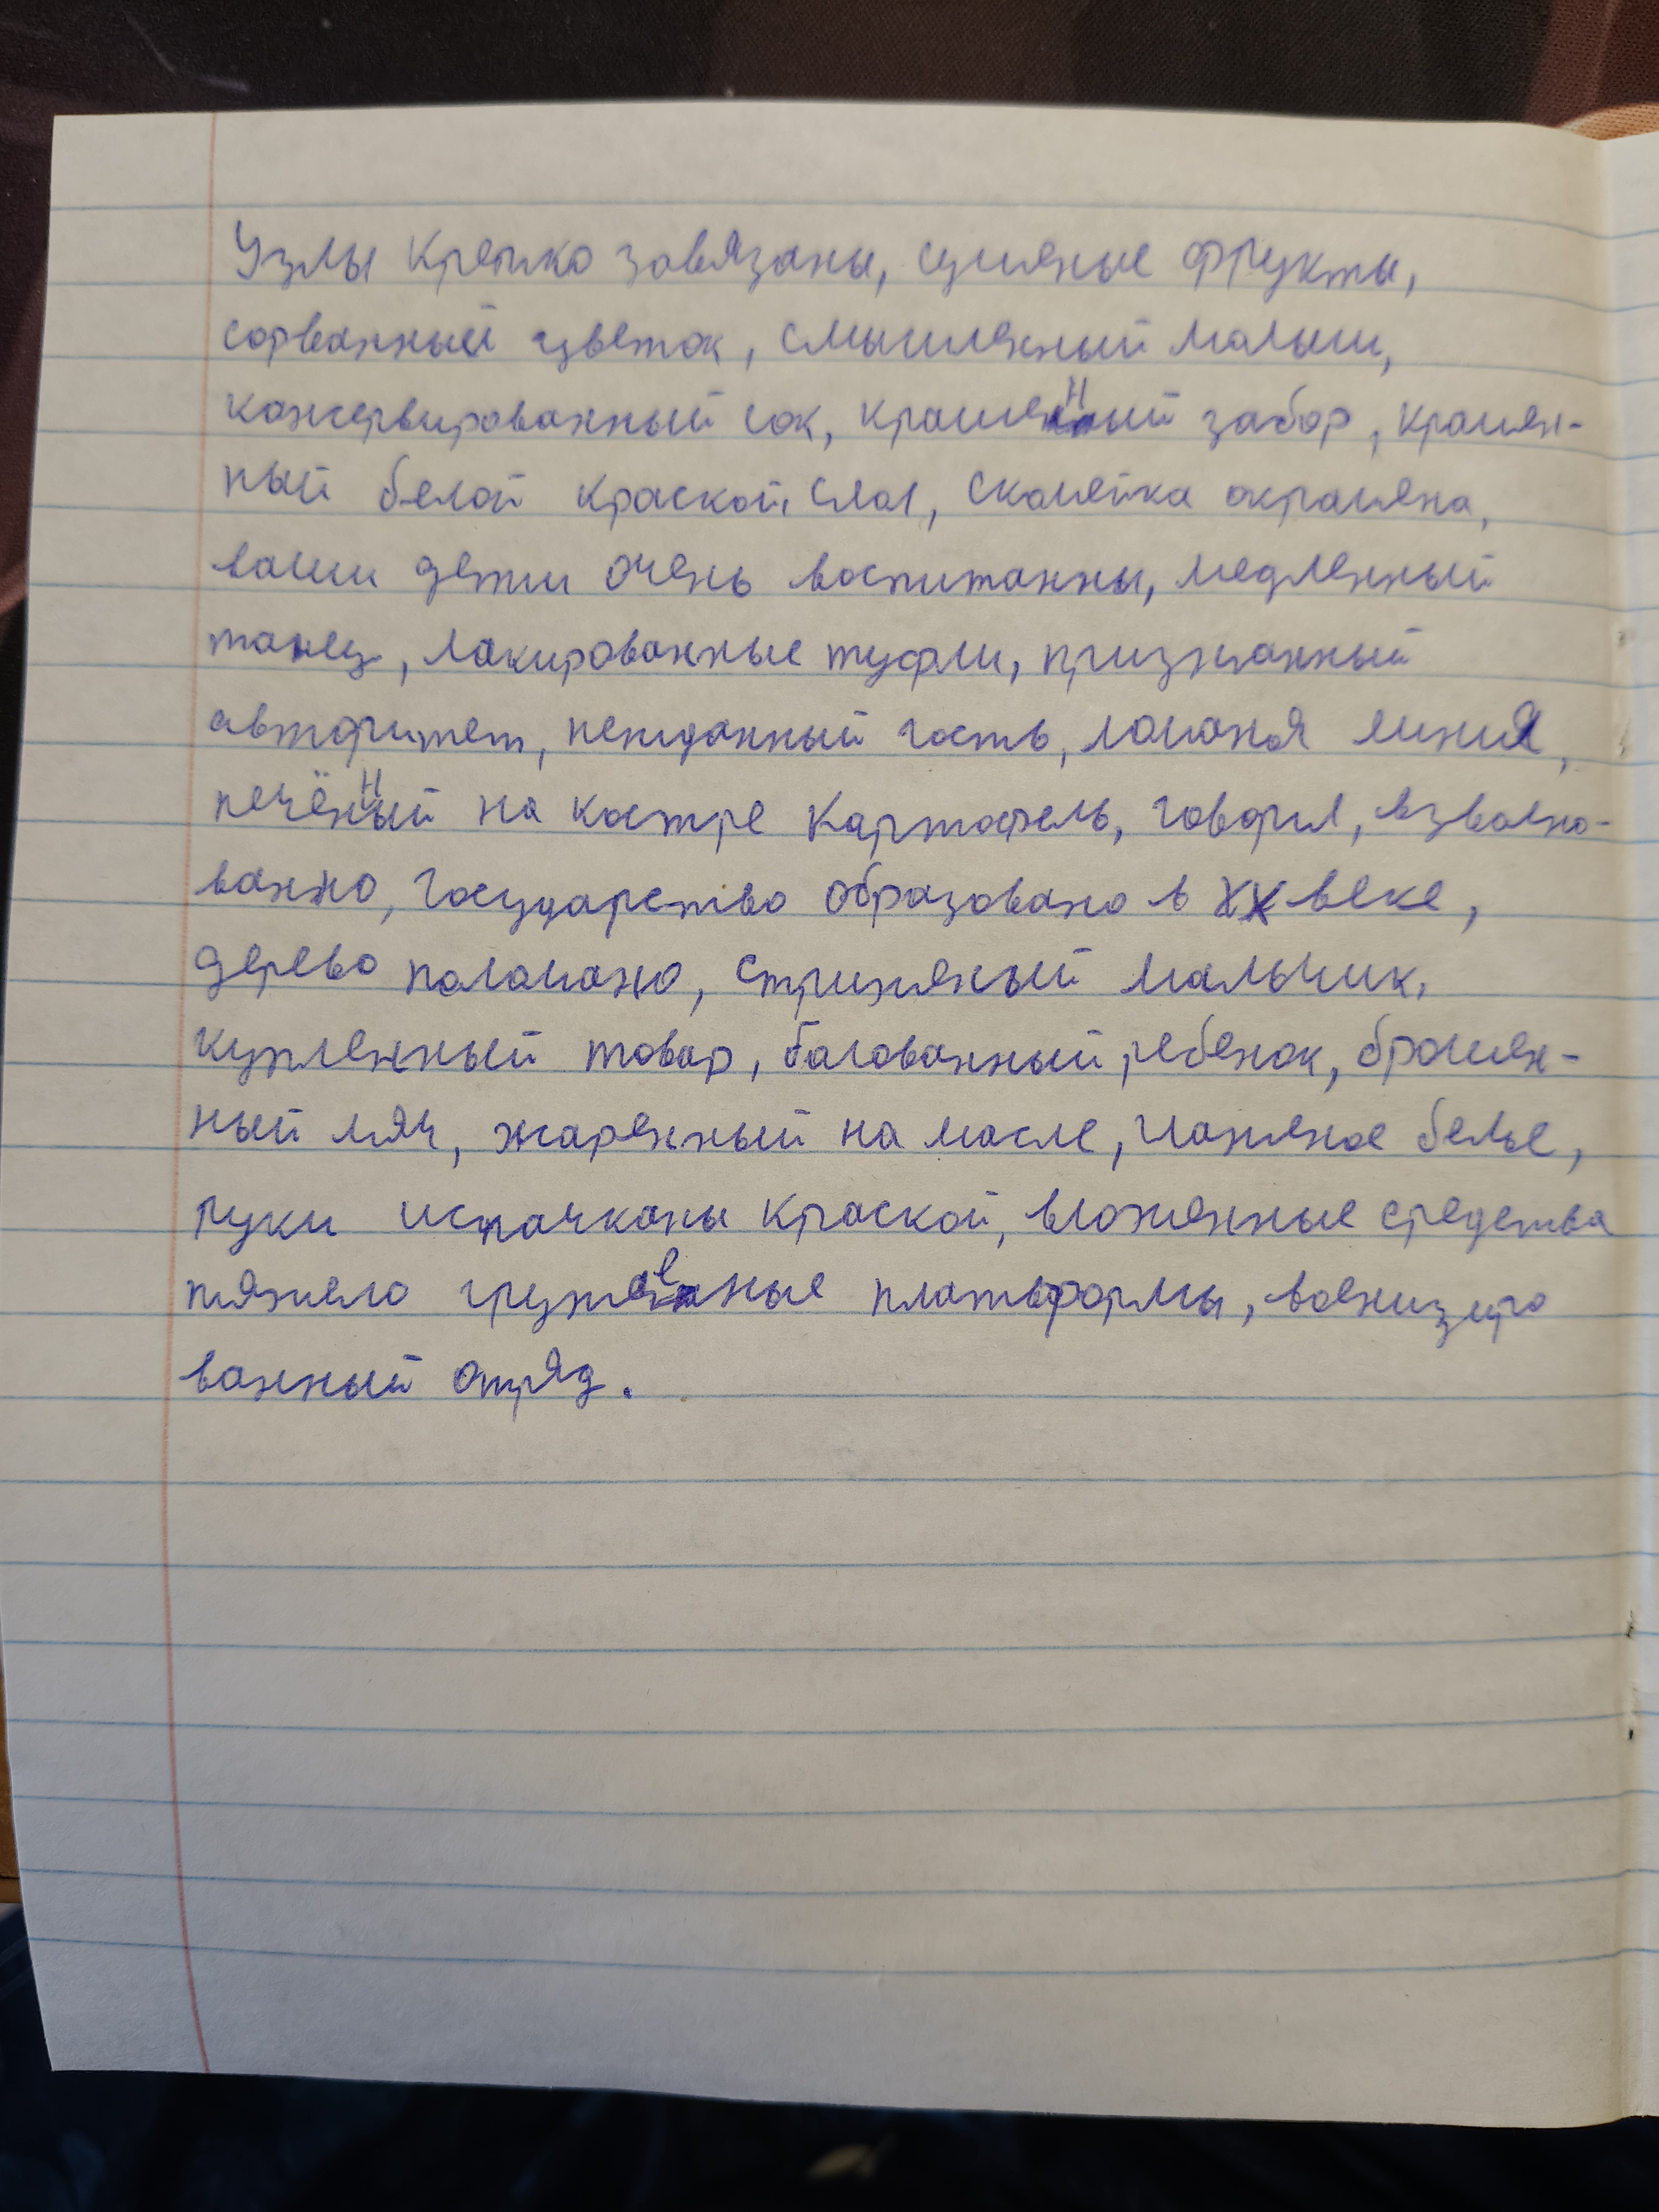 Узлы крепко завязаны, сушеные фрукты,
сорванный цветок, смышленный малыш,
консервированный сок, крашенный забор, крашен-
ный белой краской, слог, скамейка окрашена,
ваши дети очень воспитанны, медленный
танец, лакированные туфли, признанный
авторитет, нежданный гость, ломаная линия,
печённый на костре картофель, говорил, взволно-
ванно, государство образовано в XX веке,
дерево поломано, стриженый мальчик,
купленный товар, балованный ребенок, брошен-
ный мяч, жаренный на масле, глаженое белье,
руки испачканы краской, вложенные средства
тяжело груженные платформы, военизиро
ванный отряд.